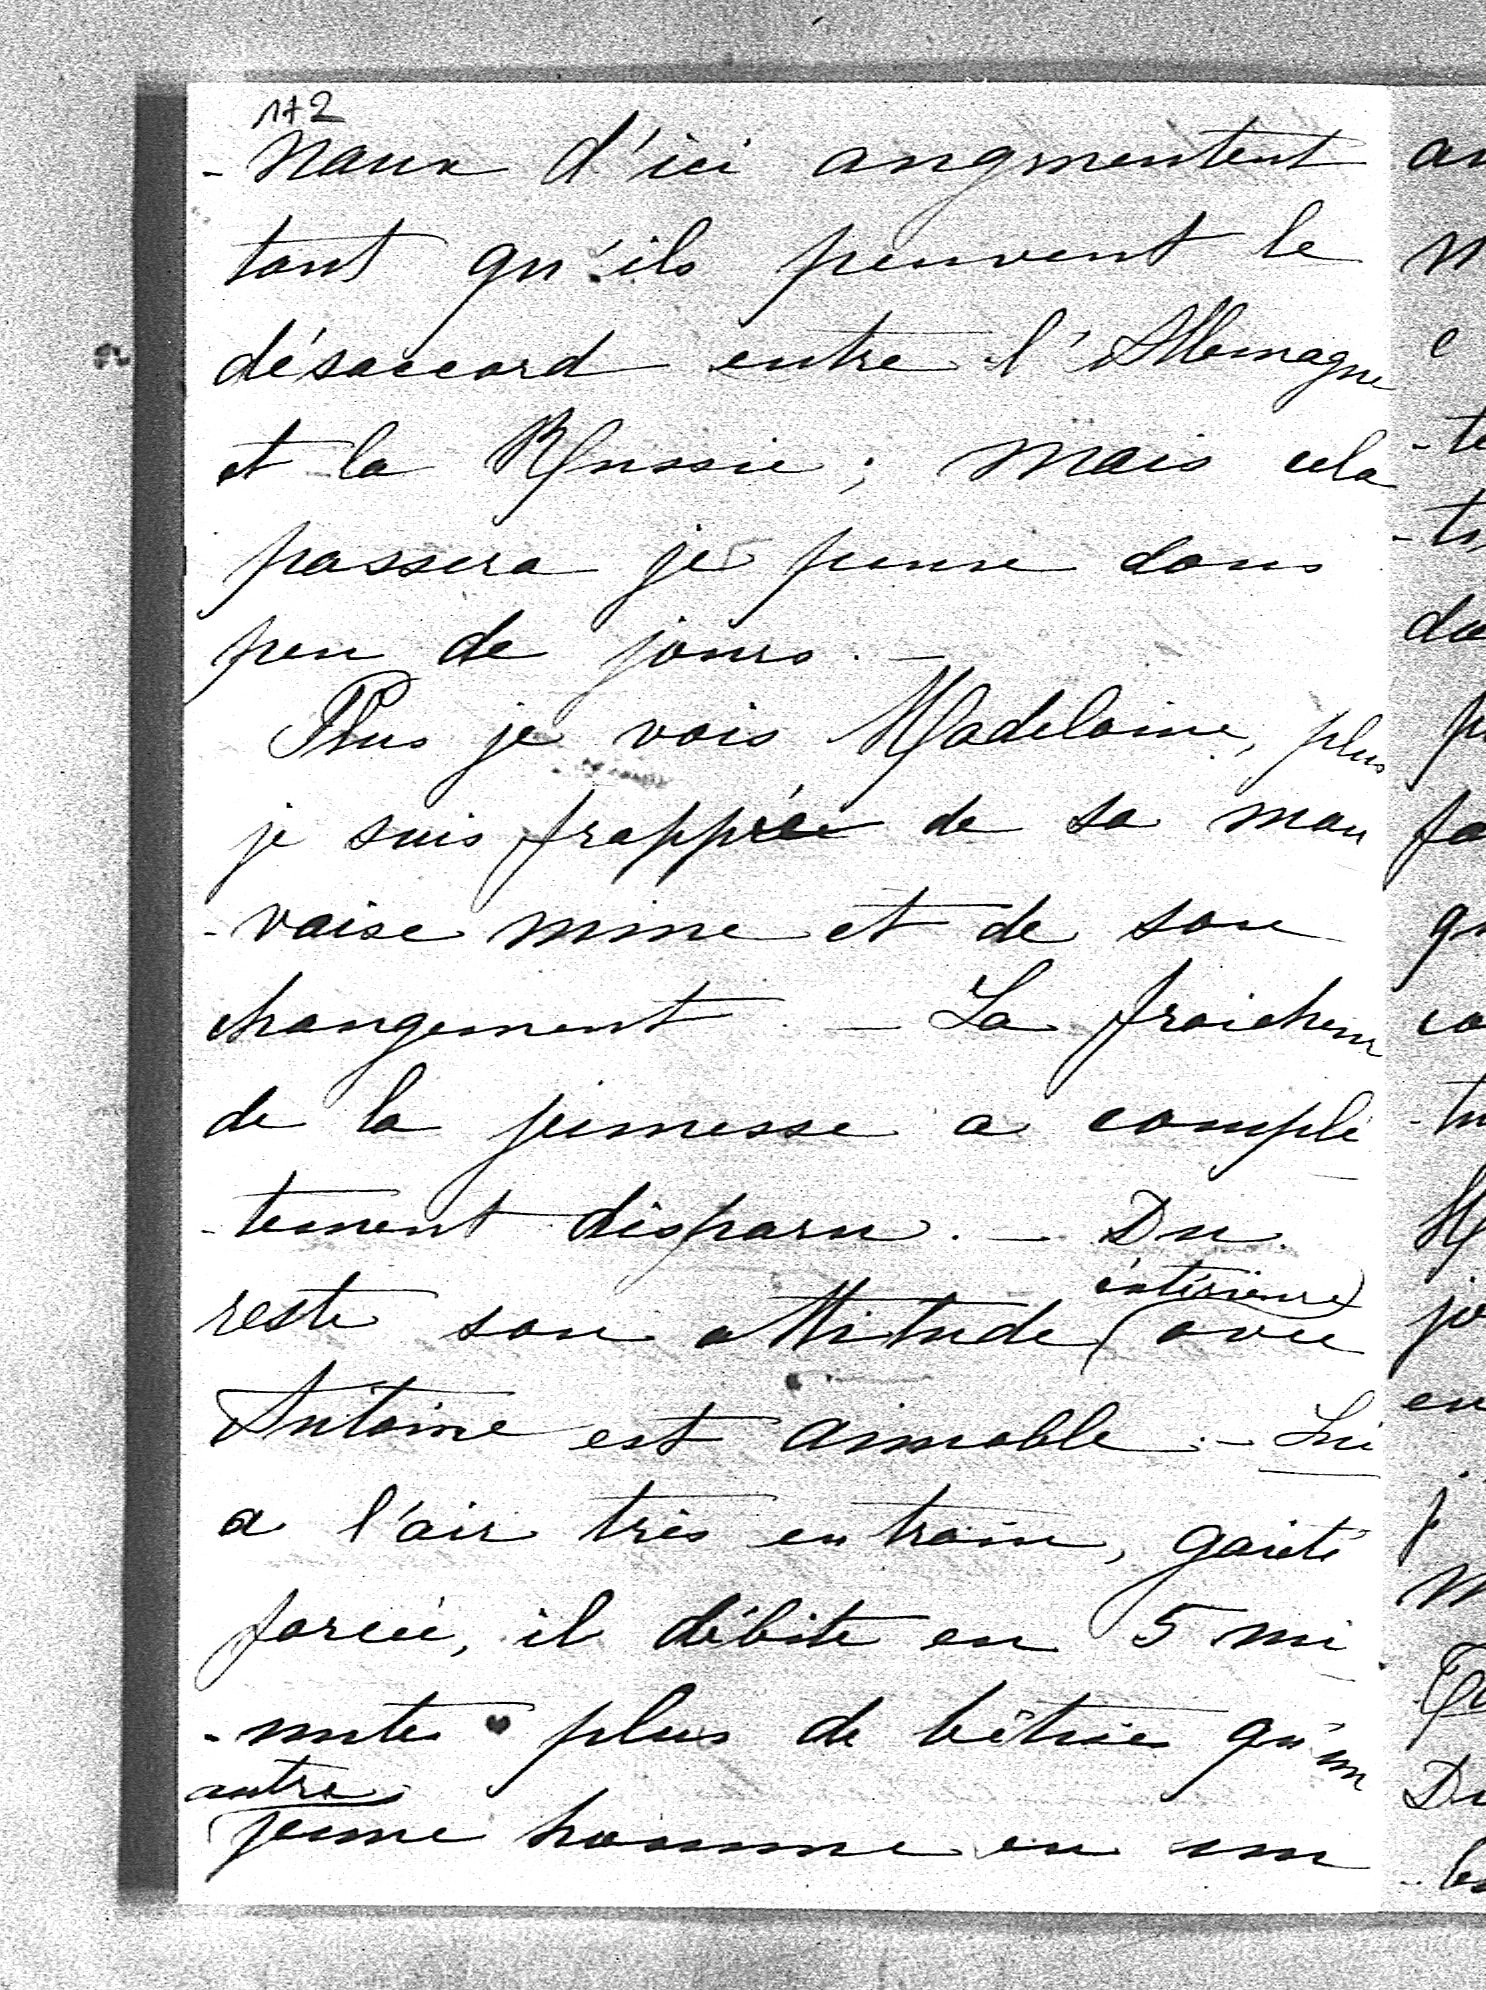 172
-naux d'ici augmentent
tant qu'ils peuvent le
désaccord entre l'Allemagne
et la Russie ; mais cela
passera je pense dans
peu de jours. —
Plus je vois Madelaine, plus
je suis frappée de sa mau
-vaise mine et de son
changement. — La fraicheur
de la jeunesse a complè
-tement disparu. — Du
extérieure
reste son attitude (avec
Antoine est aimable. — Lui
a l'air très en train, gaieté
forcée, il débite en 5 mi
-nutes plus de bêtises qu'un
autre
jeune homme en un